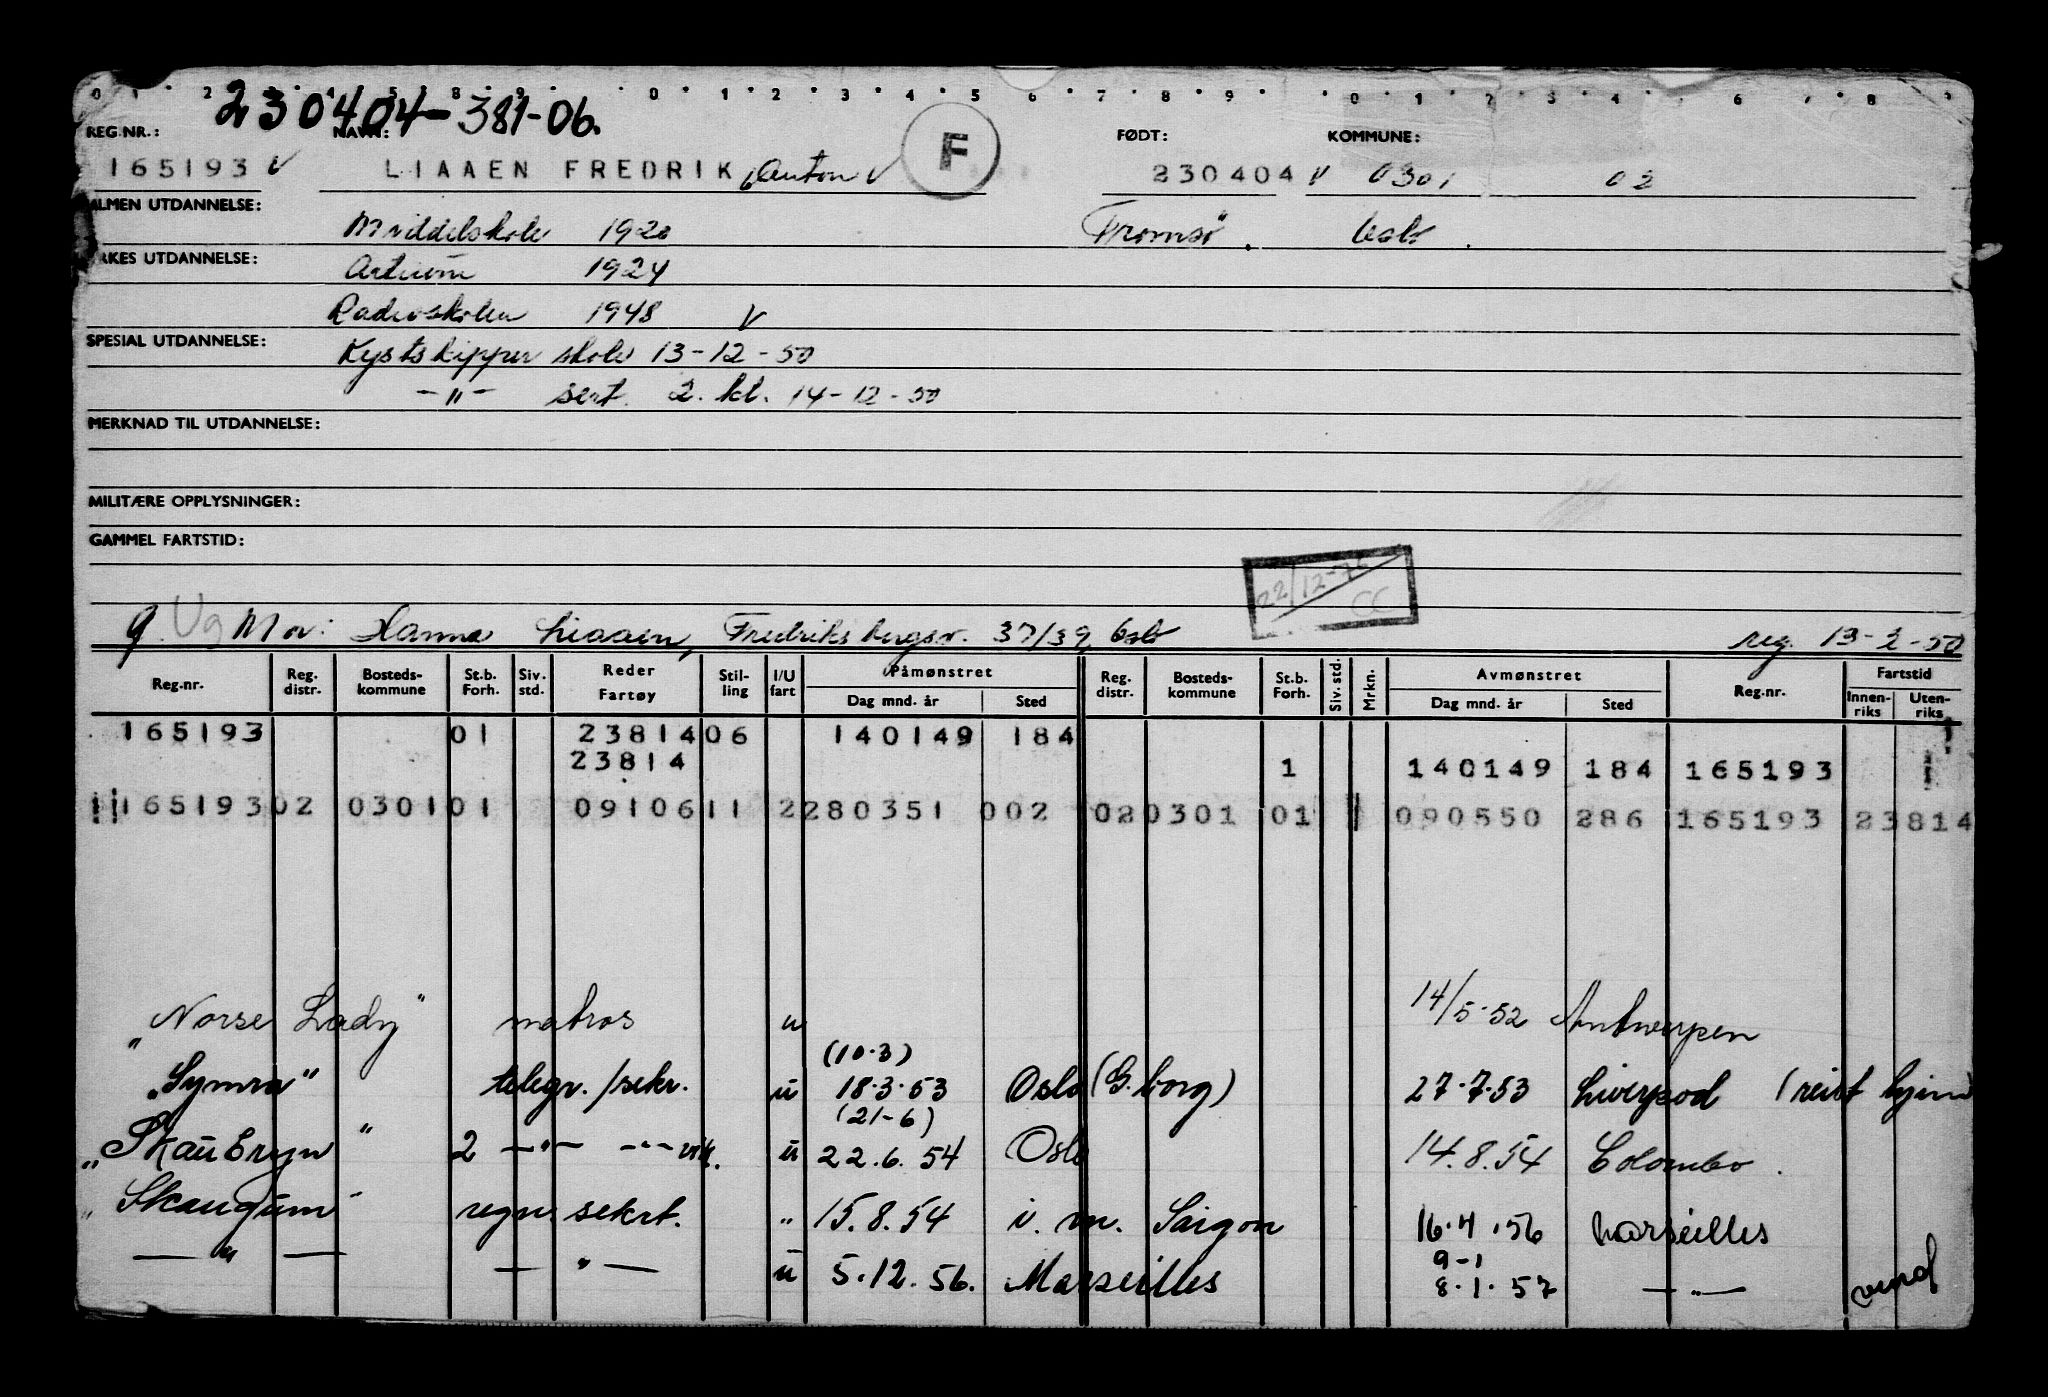 0 1 2 4 5 8 9 0 1 2 3 4 5 6 7 8 9 0 1 2 3 4 6 7 8 9
230404-381-06.
REG.NR.: NAVN: FØDT: KOMMUNE:
165193 V LIAAEN FREDRIK, Anton V F 230404 V 0301 02
ALMEN UTDANNELSE: Middelskole 1920 Tromsø. Oslo.
YRKES UTDANNELSE: Artium 1924
Radioskolen 1948 V
SPESIAL UTDANNELSE: Kystskipper skole 13-12-50
-"- sert. 2. kl. 14-12-50
MERKNAD TIL UTDANNELSE:
MILITÆRE OPPLYSNINGER:
GAMMEL FARTSTID:
22/12-75 CC
g. Ug Mor: Hanna Liaaen, Fredriksbergsv. 37/39, Oslo reg. 13-2-50
Reg.nr. Reg. distr. Bosteds-kommune St.b. Forh. Siv. std. Reder Fartøy Stil-ling I/U fart Påmønstret Dag mnd. år Sted Reg. distr. Bosteds-kommune St.b. Forh. Siv. std. Mrkn. Avmønstret Dag mnd. år Sted Reg.nr. Fartstid Innen-riks Uten-riks
165193 01 23814 06 140149 184
23814 1 140149 184 165193
165193 02 0301 01 09106 11 2 280351 002 02 0301 01 090550 286 165193 23814
"Norse Lady" matros u 14/5-52 Antwerpen
(10.3)
"Symra" telegr./sekr. u 18.3.53 Oslo (G.borg) 27.7.53 Liverpool (reist hjem
(21-6)
"Skaubryn" 2 -"- -"- vik. u 22.6.54 Oslo 14.8.54 Colombo.
"Skaugum" regn. sekrt. " 15.8.54 i. m. Saigon 16.4.56 Marseilles
9-1
-"- -"- u 5.12.56. Marseilles 8.1.57 -"-